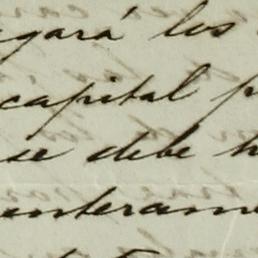 gará los
capital p
se debe h
enteram